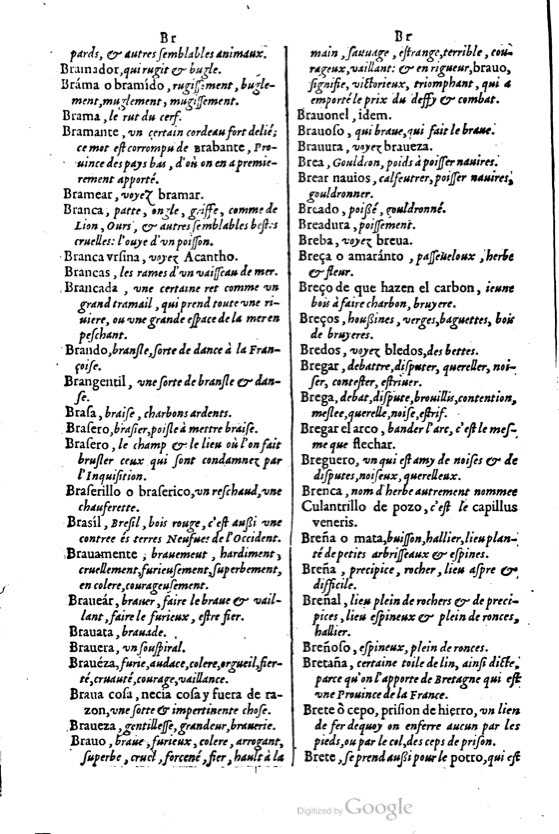 Br
pards, & autres ſemblables animaux.
Bramador, qui rugit & bugle.
Bráma o bramido, rugiſſement, bugle-
ment, muglement, mugiſſement.
Brama, le rut du cerf.
Bramante, vn certain cordeau fort delié;
ce mot eſt corrompu de Brabante, Pro-
uince des pays bas, d'où on en a premie-
rement apporté.
Bramear, voyez bramar.
Branca, patte, ongle, griffe, comme de
Lion, Ours, & autres ſemblables beſtes
cruelles: l'ouye d'vn poiſſon.
Branca vrſina, voyez Acantho.
Brancas, les rames d'vn vaiſſeau de mer.
Brancada, vne certaine ret comme vn
grand tramail, qui prend toute vne ri-
uiere, ou vne grande eſpace de la mer en
peſchant.
Brando, branſle, ſorte de dance à la Fran-
çoiſe.
Brangentil, vne ſorte de branſle & dan-
ſe.
Braſa, braiſe, charbons ardents.
Braſero, braſier, poiſle à mettre braiſe.
Braſero, le champ & le lieu où l'on fait
bruſler ceux qui ſont condamnez par
l'Inquiſition.
Braſerillo o braſerico, vn reſchaud, vne
chaufferette.
Braſil, Breſil, bois rouge, c'eſt auſſi vne
contree és terres Neufues de l'Occident.
Brauamente, brauement, hardiment,
cruellement, furieuſement, ſuperbement,
en colere, courageuſement.
Braueár, brauer, faire le braue & vail-
lant, faire le furieux, eſtre fier.
Brauata, brauade.
Brauera, vn ſouſpiral.
Brauéza, furie, audace, colere, orgueil, fier-
té, cruauté, courage, vaillance.
Braua coſa, necia coſa y fuera de ra-
zon, vne ſotte & impertinente choſe.
Braueza, gentilleſſe, grandeur, brauerie.
Brauo, braue, furieux, colere, arrogant,
ſuperbe, cruel, forcené, fier, hault à la
Br
main, ſauuage, eſtrange, terrible, cou-
rageux, vaillant: & en rigueur, brauo,
ſignifie, victorieux, triomphant, qui a
emporté le prix du deffy & combat.
Brauonel, idem.
Brauoſo, qui braue, qui fait le braue.
Brauura, voyez braueza.
Brea, Gouldron, poids à poiſſer nauires.
Brear nauios, calfeutrer, poiſſer nauires,
gouldronner.
Breado, poiſſé, gouldronné.
Breadura, poiſſement.
Breba, voyez breua.
Breça o amaránto, paſſeueloux, herbe
& fleur.
Breço de que hazen el carbon, ieune
bois à faire charbon, bruyere.
Breços, houſſines, verges, baguettes, bois
de bruyeres.
Bredos, voyez bledos, des bettes.
Bregar, debattre, diſputer, quereller, noi-
ſer, conteſter, eſtriuer.
Brega, debat, diſpute, brouillis, contention,
meſlee, querelle, noiſe, eſtrif.
Bregar el arco, bander l'arc, c'eſt le meſ-
me que flechar.
Breguero, vn qui eſt amy de noiſes & de
diſputes, noiſeux, querelleux.
Brenca, nom d'herbe autrement nommee
Culantrillo de pozo, c'eſt le capillus
veneris.
Breña o mata, buiſſon, hallier, lieu plan-
té de petits arbriſſeaux & eſpines.
Breña, precipice, rocher, lieu aſpre &
difficile.
Breñal, lieu plein de rochers & de preci-
pices, lieu eſpineux & plein de ronces,
hallier.
Breñoſo, eſpineux, plein de ronces.
Bretaña, certaine toile de lin, ainſi dicte,
parce qu'on l'apporte de Bretagne qui eſt
vne Prouince de la France.
Brete ò cepo, priſion de hierro, vn lien
de fer dequoy on enferre aucun par les
pieds, ou par le col, des ceps de priſon.
Brete, ſe prend auſſi pour le potro, qui eſt
Digitized by Google